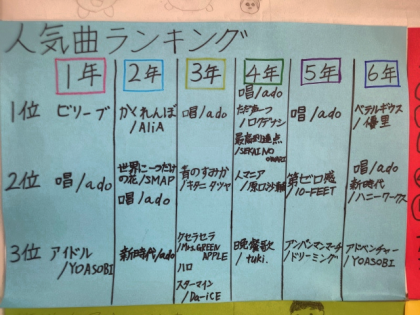 人気曲ランキング
1年 2年 3年 4年 5年 6年
1位
ビリーブ
かくれんぼ
/AliA
唱/ado
唱/ado
ただ一つ
/ロクデナシ
最高到達点
/SEKAI NO
OWARI
唱/ado
ベテルギウス
/優里
2位
唱/ado
世界に一つだけ
の花/SMAP
唱/ado
青のすみか
/キタニタツヤ
人マニア
/原口沙輔
第ゼロ感
/10-FEET
唱/ado
新時代
/ハニーワークス
3位
アイドル
/YOASOBI
新時代/ado
ケセラセラ
/Mrs.GREEN
APPLE
ハロ
スターマイン
/Da-iCE
晩餐歌
/tuki.
アンパンマンマーチ
/ドリーミング
アドベンチャー
/YOASOBI